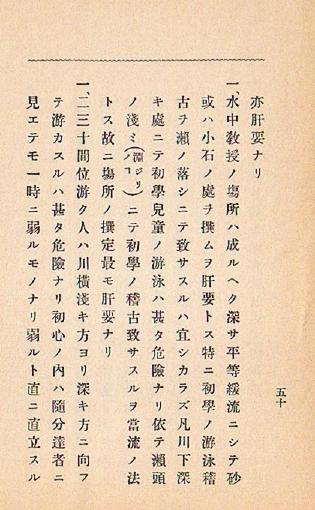 亦肝要ナリ
一、水中敎授ノ塲所ハ成ルヘク深サ平等緩流ニシテ砂
或ハ小石ノ處ヲ撰ムヲ肝要トス特ニ初學ノ游泳稽
古ヲ瀨ノ落シニテ致サスルハ宜シカラズ凡川下深
キ處ニテ初學兒童ノ游泳ハ甚タ危險ナリ依テ瀨頭
ノ淺ミ(淵ジリノコ)ニテ初學ノ稽古致サスルヲ當流ノ法
トス故ニ塲所ノ撰定最モ肝要ナリ
一、二三十間位游ク人ハ川橫淺キ方ヨリ深キ方ニ向フ
テ游カスルハ甚タ危險ナリ初心ノ內ハ隨分達者ニ
見エテモ一時ニ弱ルモノナリ弱ルト直ニ直立スル
五十